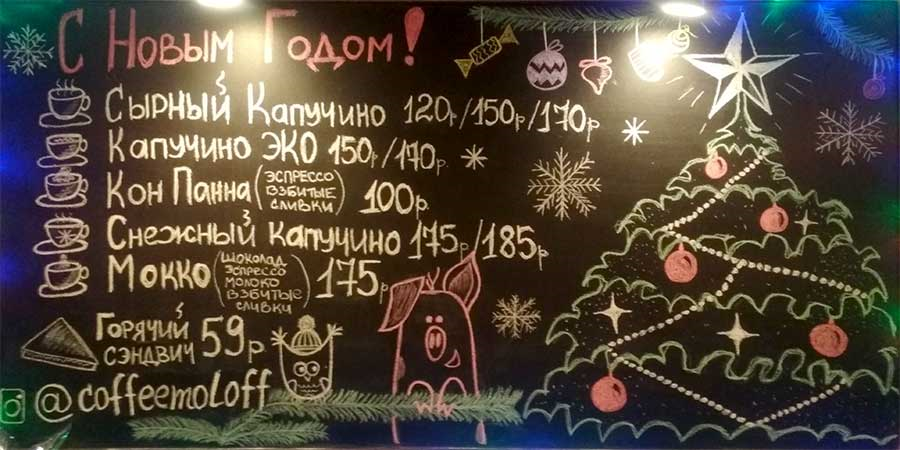 С Новым Годом!
Сырный Капучино 120р/150р/170р
Капучино ЭКО 150р/170р
Кон Панна (эспрессо взбитые сливки) 100р
Снежный Капучино 175р/185р
Мокко (шоколад эспрессо молоко взбитые сливки) 175р
Горячий сэндвич 59р
@coffeemoloff